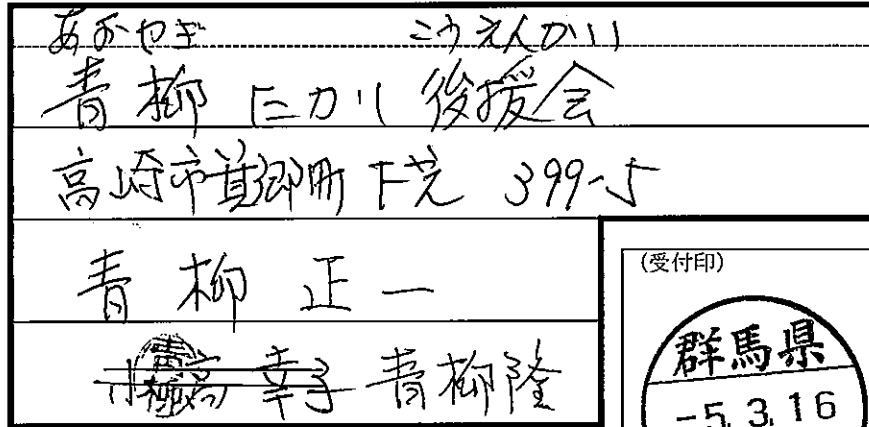 あおやぎ こうえんかい
青柳 たかし 後援会
高崎市箕郷町下芝 399-5
青柳 正一
幸子 青柳隆
(受付印)
群馬県
-5.3.16